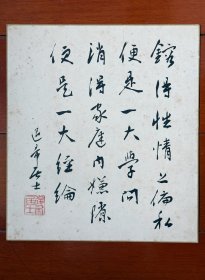 鎔得性情上偏私
便是一大學問
消得家庭內嫌隙
便是一大經綸
居士